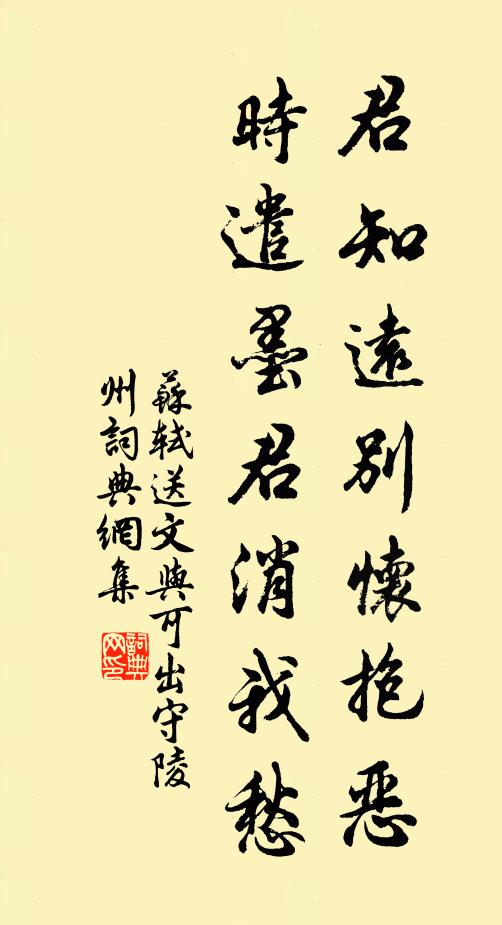 君知遠別懷抱惡
時遣墨君消我愁
蘇軾送文與可出守陵
州詞典網集
詞典
网印